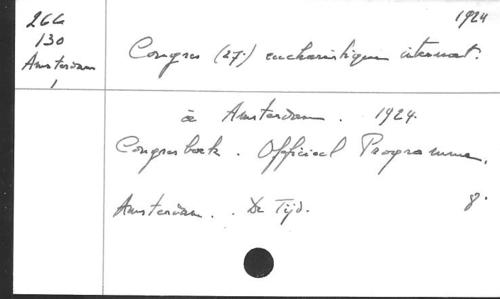 266
130
Amsterdam
1
1924
Congres (27.) eucharistique internat.
à Amsterdam. 1924.
Congresboek. Officieel Programma.
Amsterdam. . De Tijd. 8.